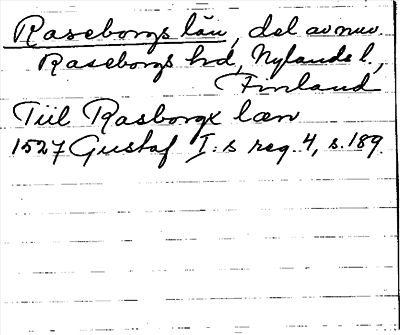 Raseborgs län, del av nuv.
Raseborgs hd, Nylands l.,
Finland
Tiil Rasborgx læn
1527 Gustaf I:s reg. 4, s. 189.